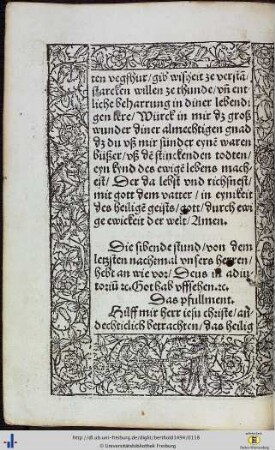 ten vegfhür/gib wißheit ze verstā
starcken willen ze thunde/vñ ent
liche beharrung in diner lebendi
gen lere/Würck in mir dz groß
wunder diner almechtigen gnad
dz du vß mir sünder eynē waren
büßer/vß dē stinckenden todten/
eyn kynd des ewigē lebens mach
est/ Der da lebst vnd richsnest/
mit gott dem vatter/in eynikeit
des heiligē geists/gott/durch ewi
ge ewickeit der welt/Amen.
Die sibende stund/von dem
letzsten nachtmal vnsers herren/
hebt an wie vor/Deus in adiu
toriū ꝛc. Got hab vffsehen.ꝛc.
Das psullment.
Hilff mir herr iesu christe/an
dechticlich betrachten/das heilig
http://dl.ub.uni-freiburg.de/diglit/berthold1494/0118
© Universitätsbibliothek Freiburg